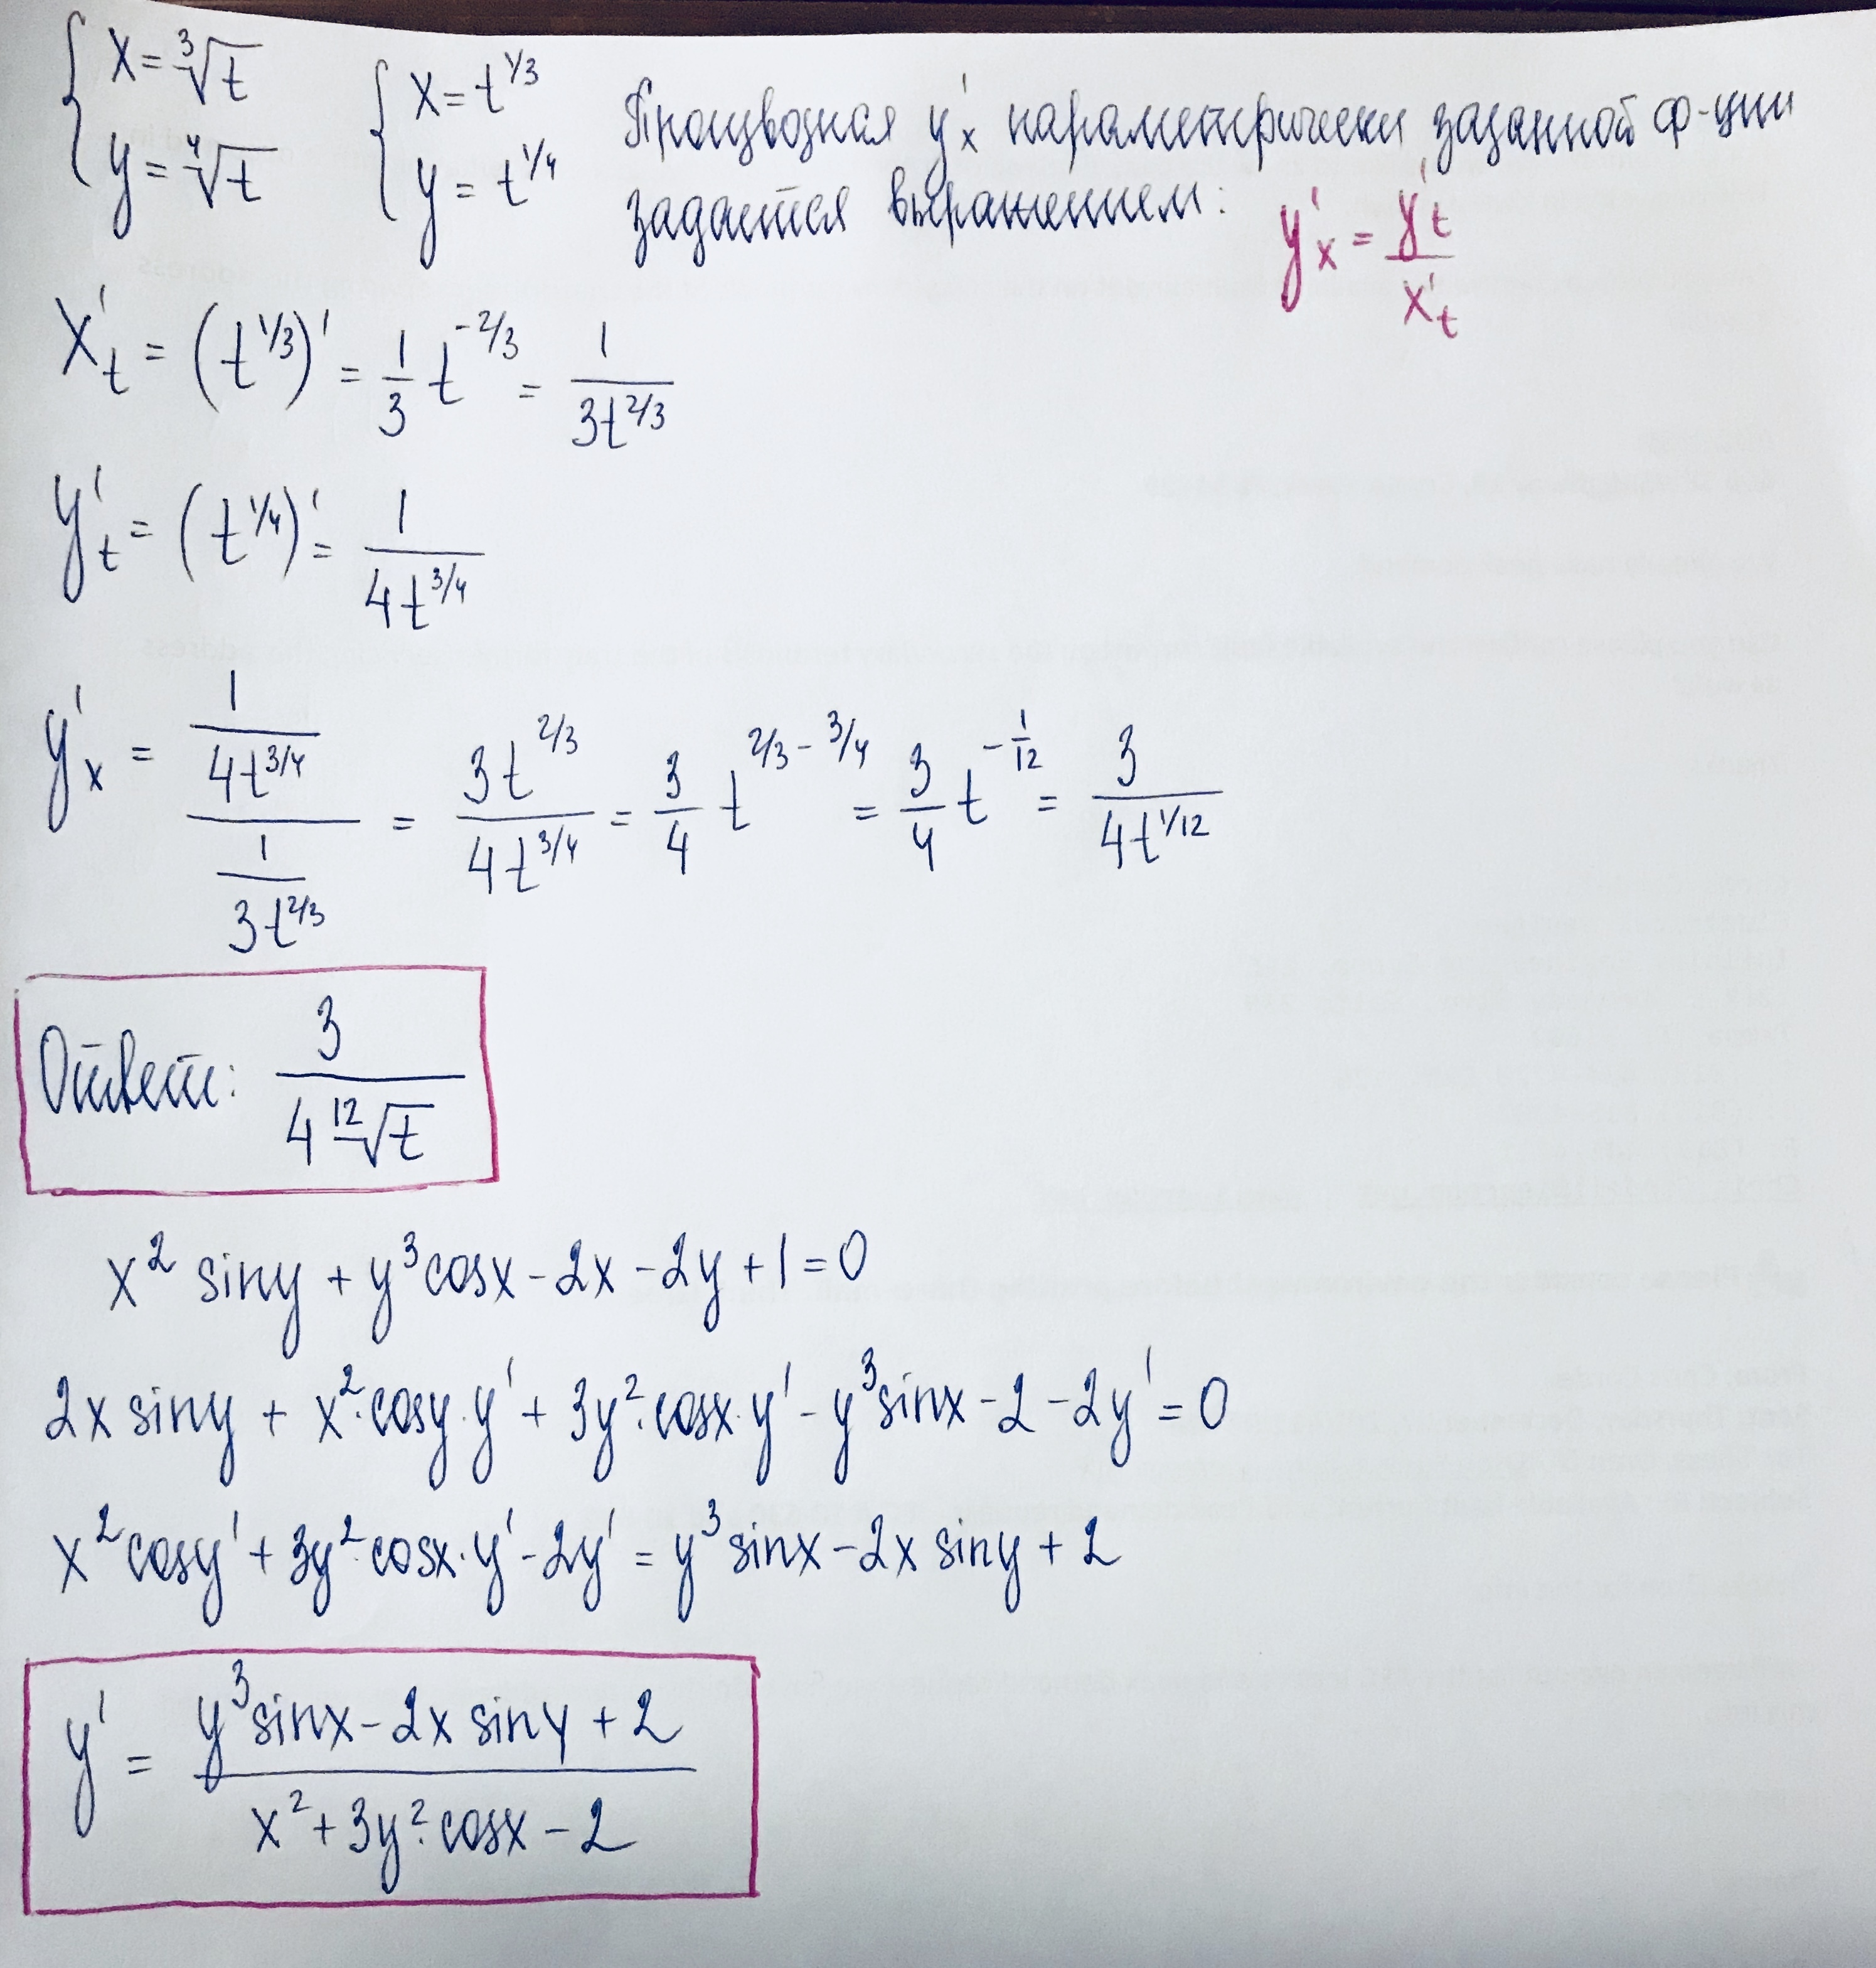 { x = ∛t { x = t^1/3 Производная y'x параметрически заданной ф-ции
y = ∜t y = t^1/4 задаётся выражением: y'x = y't / x't
x't = (t^1/3)' = 1/3 t^-2/3 = 1 / 3t^2/3
y't = (t^1/4)' = 1 / 4t^3/4
y'x = (1 / 4t^3/4) / (1 / 3t^2/3) = 3t^2/3 / 4t^3/4 = 3/4 t^2/3-3/4 = 3/4 t^-1/12 = 3 / 4t^1/12
Ответ: 3 / 4 ¹²√t
x² siny + y³cosx - 2x - 2y + 1 = 0
2x siny + x²·cosy·y' + 3y²·cosx·y' - y³sinx - 2 - 2y' = 0
x²cosy' + 3y²·cosx·y' - 2y' = y³sinx - 2x siny + 2
y' = y³sinx - 2x siny + 2 / x² + 3y²·cosx - 2